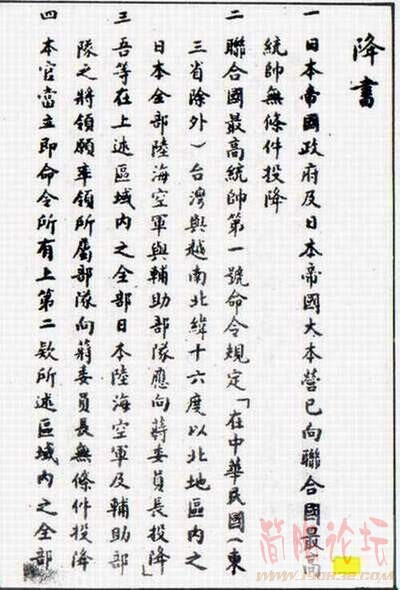 降書
一 日本帝國政府及日本帝國大本營已向聯合國最高
統帥無條件投降
二 聯合國最高統帥第一號命令規定「在中華民國(東
三省除外)台灣與越南北緯十六度以北地區內之
日本全部陸海空軍與輔助部隊應向蔣委員長投降」
三 吾等在上述區域內之全部日本陸海空軍及輔助部
隊之將領願率領所屬部隊向蔣委員長無條件投降
四 本官當立即命令所有上第二款所述區域內之全部
简阳论坛